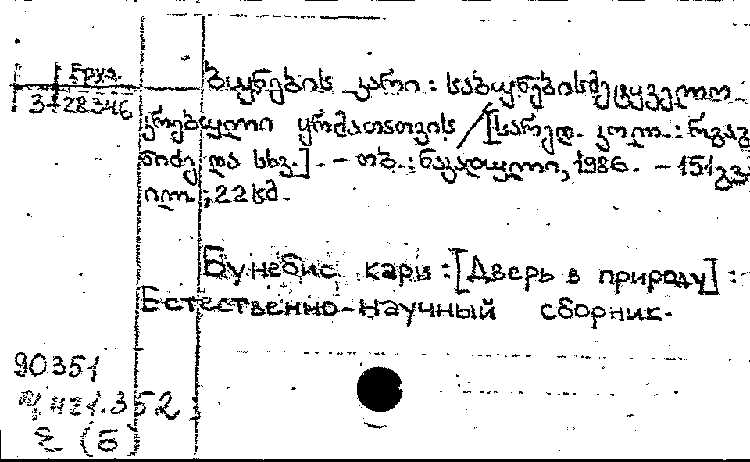 Груз.
3-28346
ბუნების კარი: საბუნებისმეტყველო
კრებული ყრმათათვის / [სარედ. კოლ.: რ.
და სხვ.]. – თბ.: ნაკადული, 1986. – 151 გვ.
ილ.; 22 სმ.
Бунебис кари: [Дверь в природу]:
Естественно-научный сборник.
90351
352
(Б)